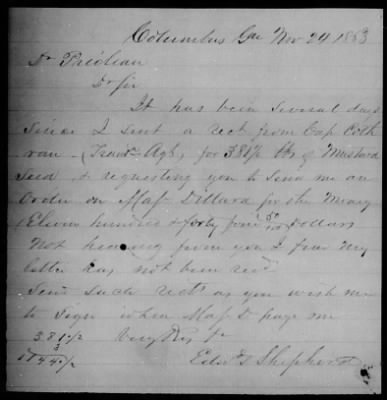 Columbus Ga Nov 24 1863
Dr Prioleau
Dr Sir
It has been several days
since I sent a rect from Cap Coth
ran (Trans Agt) for 381½ lbs of Mustard
Seed & requesting you to send me an
Order on Maj Dillard for the Money
Eleven hundred & forty four 50/100 Dollars
Not hearing from you I fear my
letter has not been recd
Send such rects as you wish me
to sign when Maj D pays me
381½ Very Res fr
3
1144.½ Edwd T Shepherd